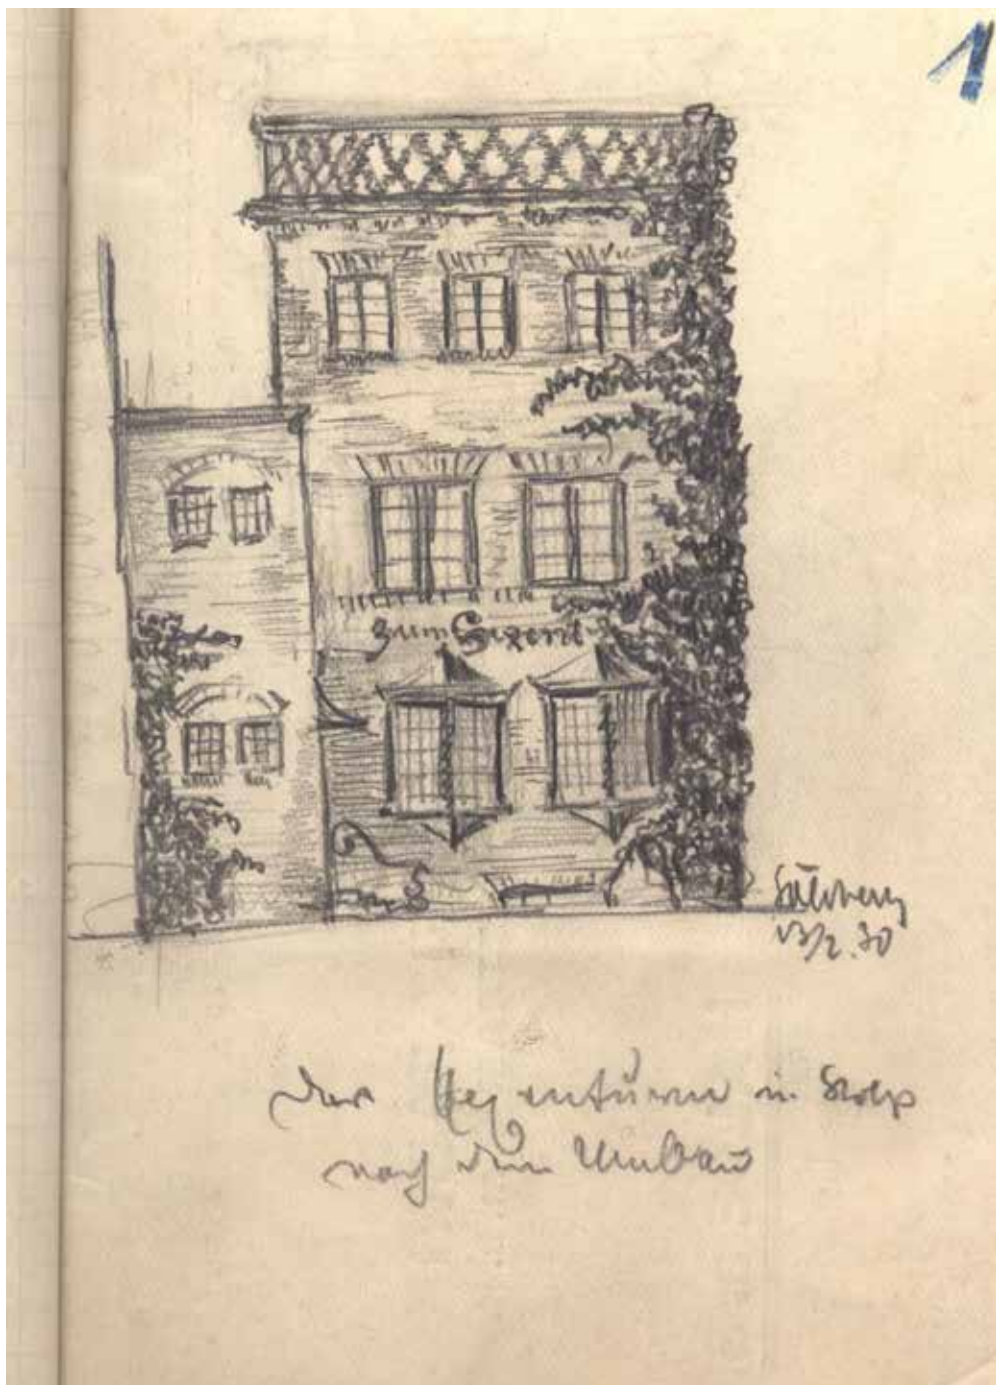 1
zum Hexent
13/2.30
Der Hexenturm in Stolp
nach dem Umbau